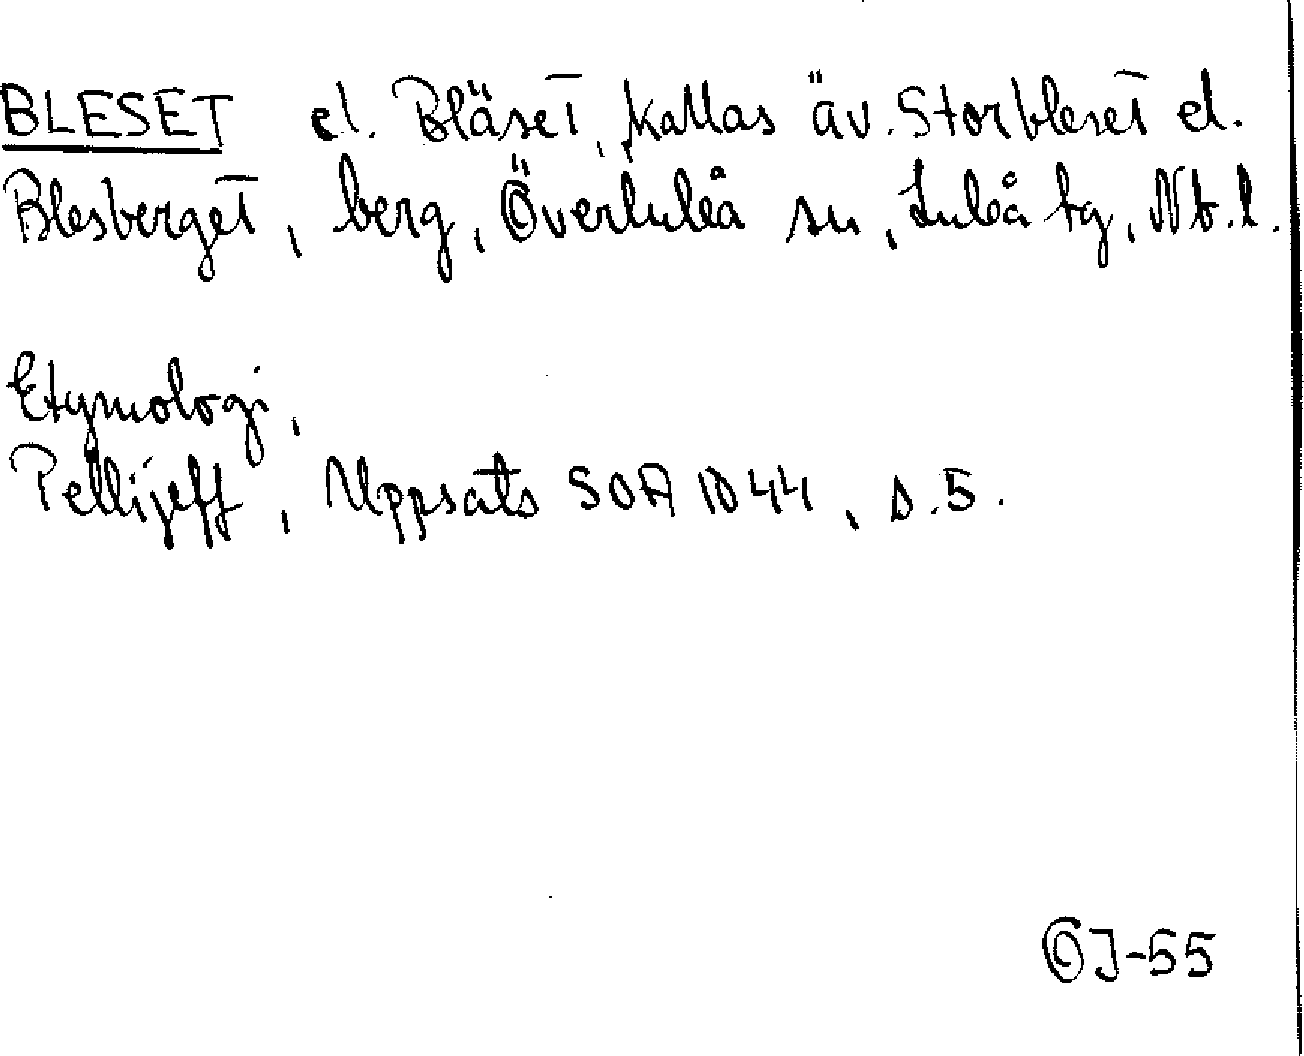 BLESET el. Bläset, kallas äv. Storbleset el.
Blesberget, berg, Överluleå sn, Luleå tg, Nb.l.
Etymologi,
Pellijeff, Uppsats SOA 1044, s.5.
OJ-55